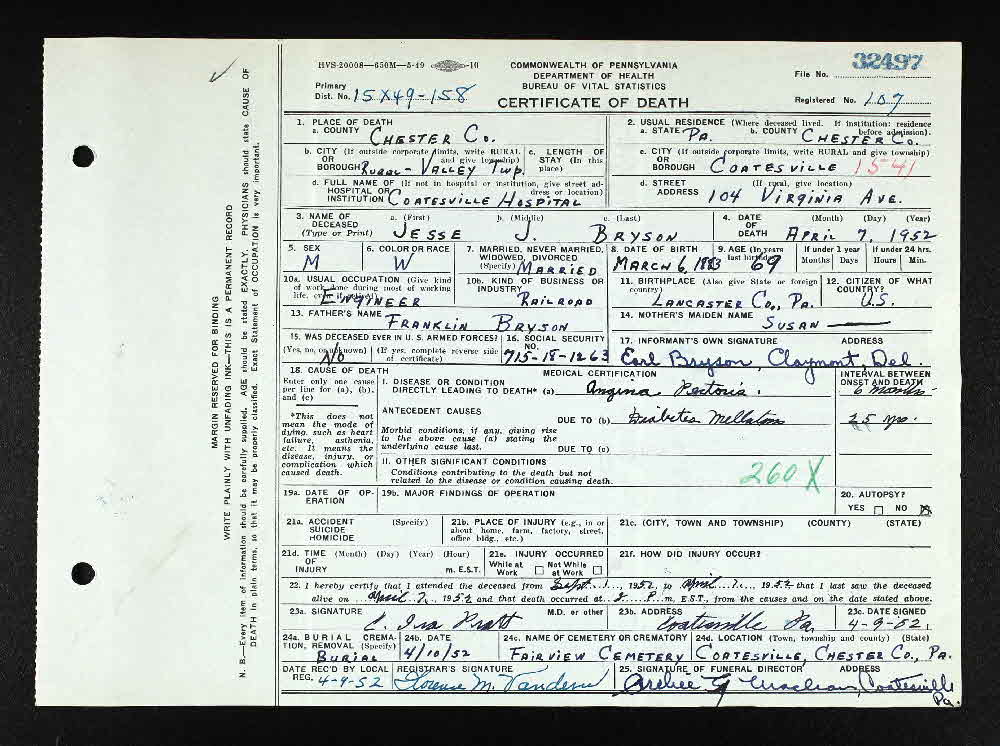 HVS-20008—650M—5-49 -10
COMMONWEALTH OF PENNSYLVANIA
DEPARTMENT OF HEALTH
BUREAU OF VITAL STATISTICS
CERTIFICATE OF DEATH
File No. 32497
Primary
Dist. No. 15X49-158
Registered No. 107
1. PLACE OF DEATH
a. COUNTY CHESTER CO.
2. USUAL RESIDENCE (Where deceased lived. If institution: residence before admission).
a. STATE PA. b. COUNTY CHESTER CO.
b. CITY (If outside corporate limits, write RURAL and give township)
OR
BOROUGH RURAL- VALLEY TWP.
c. LENGTH OF STAY (In this place)
c. CITY (If outside corporate limits, write RURAL and give township)
OR
BOROUGH COATESVILLE 1541
d. FULL NAME OF (If not in hospital or institution, give street address or location)
HOSPITAL OR
INSTITUTION COATESVILLE HOSPITAL
d. STREET (If rural, give location)
ADDRESS 104 VIRGINIA AVE.
3. NAME OF DECEASED (Type or Print)
a. (First) b. (Middle) c. (Last)
JESSE J. BRYSON
4. DATE OF DEATH (Month) (Day) (Year)
APRIL 7, 1952
5. SEX
M
6. COLOR OR RACE
W
7. MARRIED, NEVER MARRIED, WIDOWED, DIVORCED (Specify)
MARRIED
8. DATE OF BIRTH
MARCH 6, 1883
9. AGE (In years last birthday)
69
If under 1 year
Months Days
If under 24 hrs.
Hours Min.
10a. USUAL OCCUPATION (Give kind of work done during most of working life, even if retired)
ENGINEER
10b. KIND OF BUSINESS OR INDUSTRY
RAILROAD
11. BIRTHPLACE (Also give State or foreign country)
LANCASTER CO., PA.
12. CITIZEN OF WHAT COUNTRY?
U.S.
13. FATHER'S NAME
FRANKLIN BRYSON
14. MOTHER'S MAIDEN NAME
SUSAN ———
15. WAS DECEASED EVER IN U. S. ARMED FORCES?
(Yes, no, or unknown) (If yes, complete reverse side of certificate)
NO
16. SOCIAL SECURITY NO.
715-18-1263
17. INFORMANT'S OWN SIGNATURE ADDRESS
Earl Bryson, Claymont, Del.
18. CAUSE OF DEATH
Enter only one cause per line for (a), (b), and (c)
MEDICAL CERTIFICATION
INTERVAL BETWEEN ONSET AND DEATH
I. DISEASE OR CONDITION
DIRECTLY LEADING TO DEATH* (a) Angina Pectoris. 6 months
*This does not mean the mode of dying, such as heart failure, asthenia, etc. It means the disease, injury, or complication which caused death.
ANTECEDENT CAUSES
Morbid conditions, if any, giving rise to the above cause (a) stating the underlying cause last.
DUE TO (b) Diabetes Mellatus
DUE TO (c)
II. OTHER SIGNIFICANT CONDITIONS
Conditions contributing to the death but not related to the disease or condition causing death.
260 X
19a. DATE OF OPERATION
19b. MAJOR FINDINGS OF OPERATION
20. AUTOPSY?
YES NO X
21a. ACCIDENT (Specify)
SUICIDE
HOMICIDE
21b. PLACE OF INJURY (e.g., in or about home, farm, factory, street, office bldg., etc.)
21c. (CITY, TOWN AND TOWNSHIP) (COUNTY) (STATE)
21d. TIME (Month) (Day) (Year) (Hour)
OF
INJURY m. E.S.T.
21e. INJURY OCCURRED
While at Work Not While at Work
21f. HOW DID INJURY OCCUR?
22. I hereby certify that I attended the deceased from Sept. 1, 1951, to April 7, 1952 that I last saw the deceased
alive on April 7, 1952 and that death occurred at P.m, E.S.T., from the causes and on the date stated above.
23a. SIGNATURE M.D. or other
C. Ira Pratt
23b. ADDRESS
Coatesville Pa.
23c. DATE SIGNED
4-9-52
24a. BURIAL CREMATION, REMOVAL (Specify)
BURIAL
24b. DATE
4/10/52
24c. NAME OF CEMETERY OR CREMATORY
FAIRVIEW CEMETERY
24d. LOCATION (Town, township and county) (State)
COATESVILLE, CHESTER CO., PA.
DATE REC'D BY LOCAL REG.
4-9-52
REGISTRAR'S SIGNATURE
Florence M.
25. SIGNATURE OF FUNERAL DIRECTOR ADDRESS
Coatesville Pa.
MARGIN RESERVED FOR BINDING
WRITE PLAINLY WITH UNFADING INK—THIS IS A PERMANENT RECORD
N. B.—Every item of information should be carefully supplied. AGE should be stated EXACTLY. PHYSICIANS should state CAUSE OF
DEATH in plain terms, so that it may be properly classified. Exact Statement of OCCUPATION is very important.